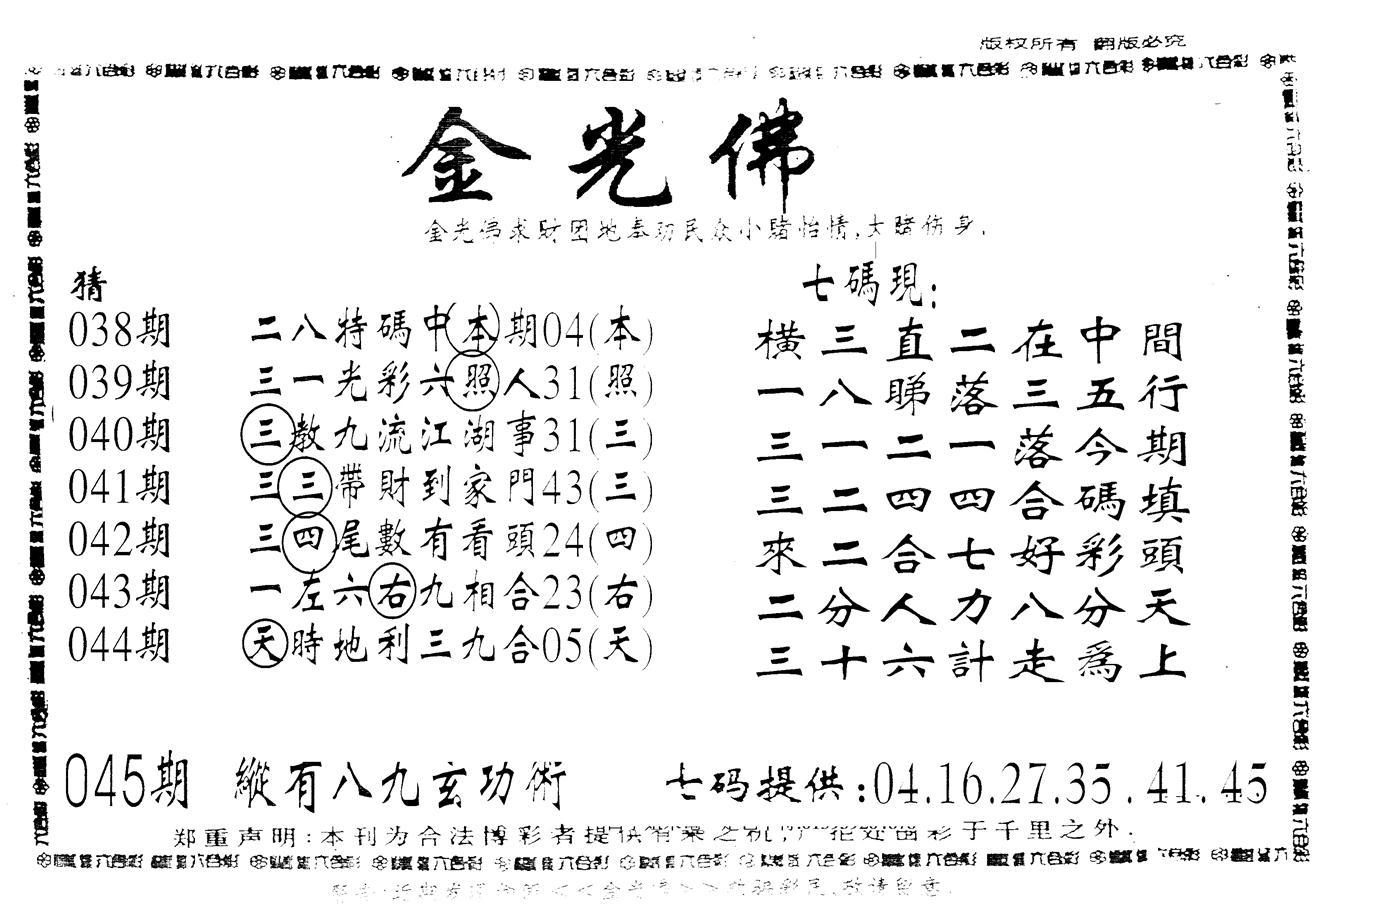 版权所有 翻版必究
金光佛
金光佛求财团地奉劝民众小赌怡情,大赌伤身.
猜
038期 二八特碼中本期04(本)
039期 三一光彩六照人31(照)
040期 三教九流江湖事31(三)
041期 三三帶財到家門43(三)
042期 三四尾數有看頭24(四)
043期 一左六右九相合23(右)
044期 天時地利三九合05(天)
七碼現:
橫三直二在中間
一八睇落三五行
三一二一落今期
三二四四合碼填
來二合七好彩頭
二分人力八分天
三十六計走爲上
045期 縱有八九玄功術 七码提供:04.16.27.35.41.45
郑重声明:本刊为合法博彩者提供 彩于千里之外.
敬请留意.